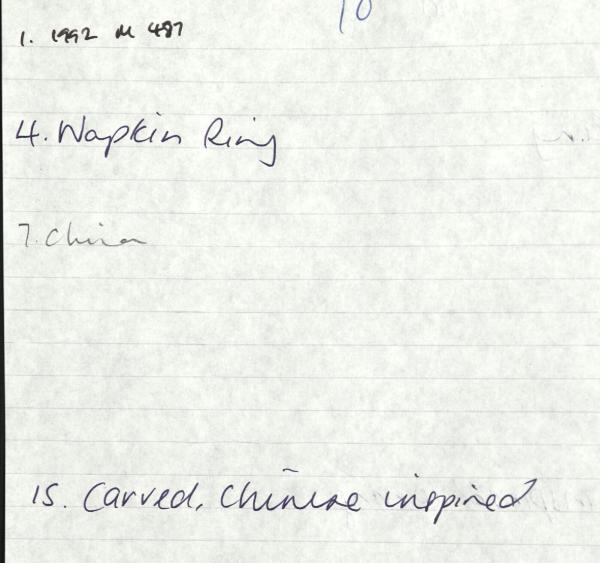 10
1. 1992 M 487
4. Napkin Ring
7. China
15. Carved, Chinese inspired